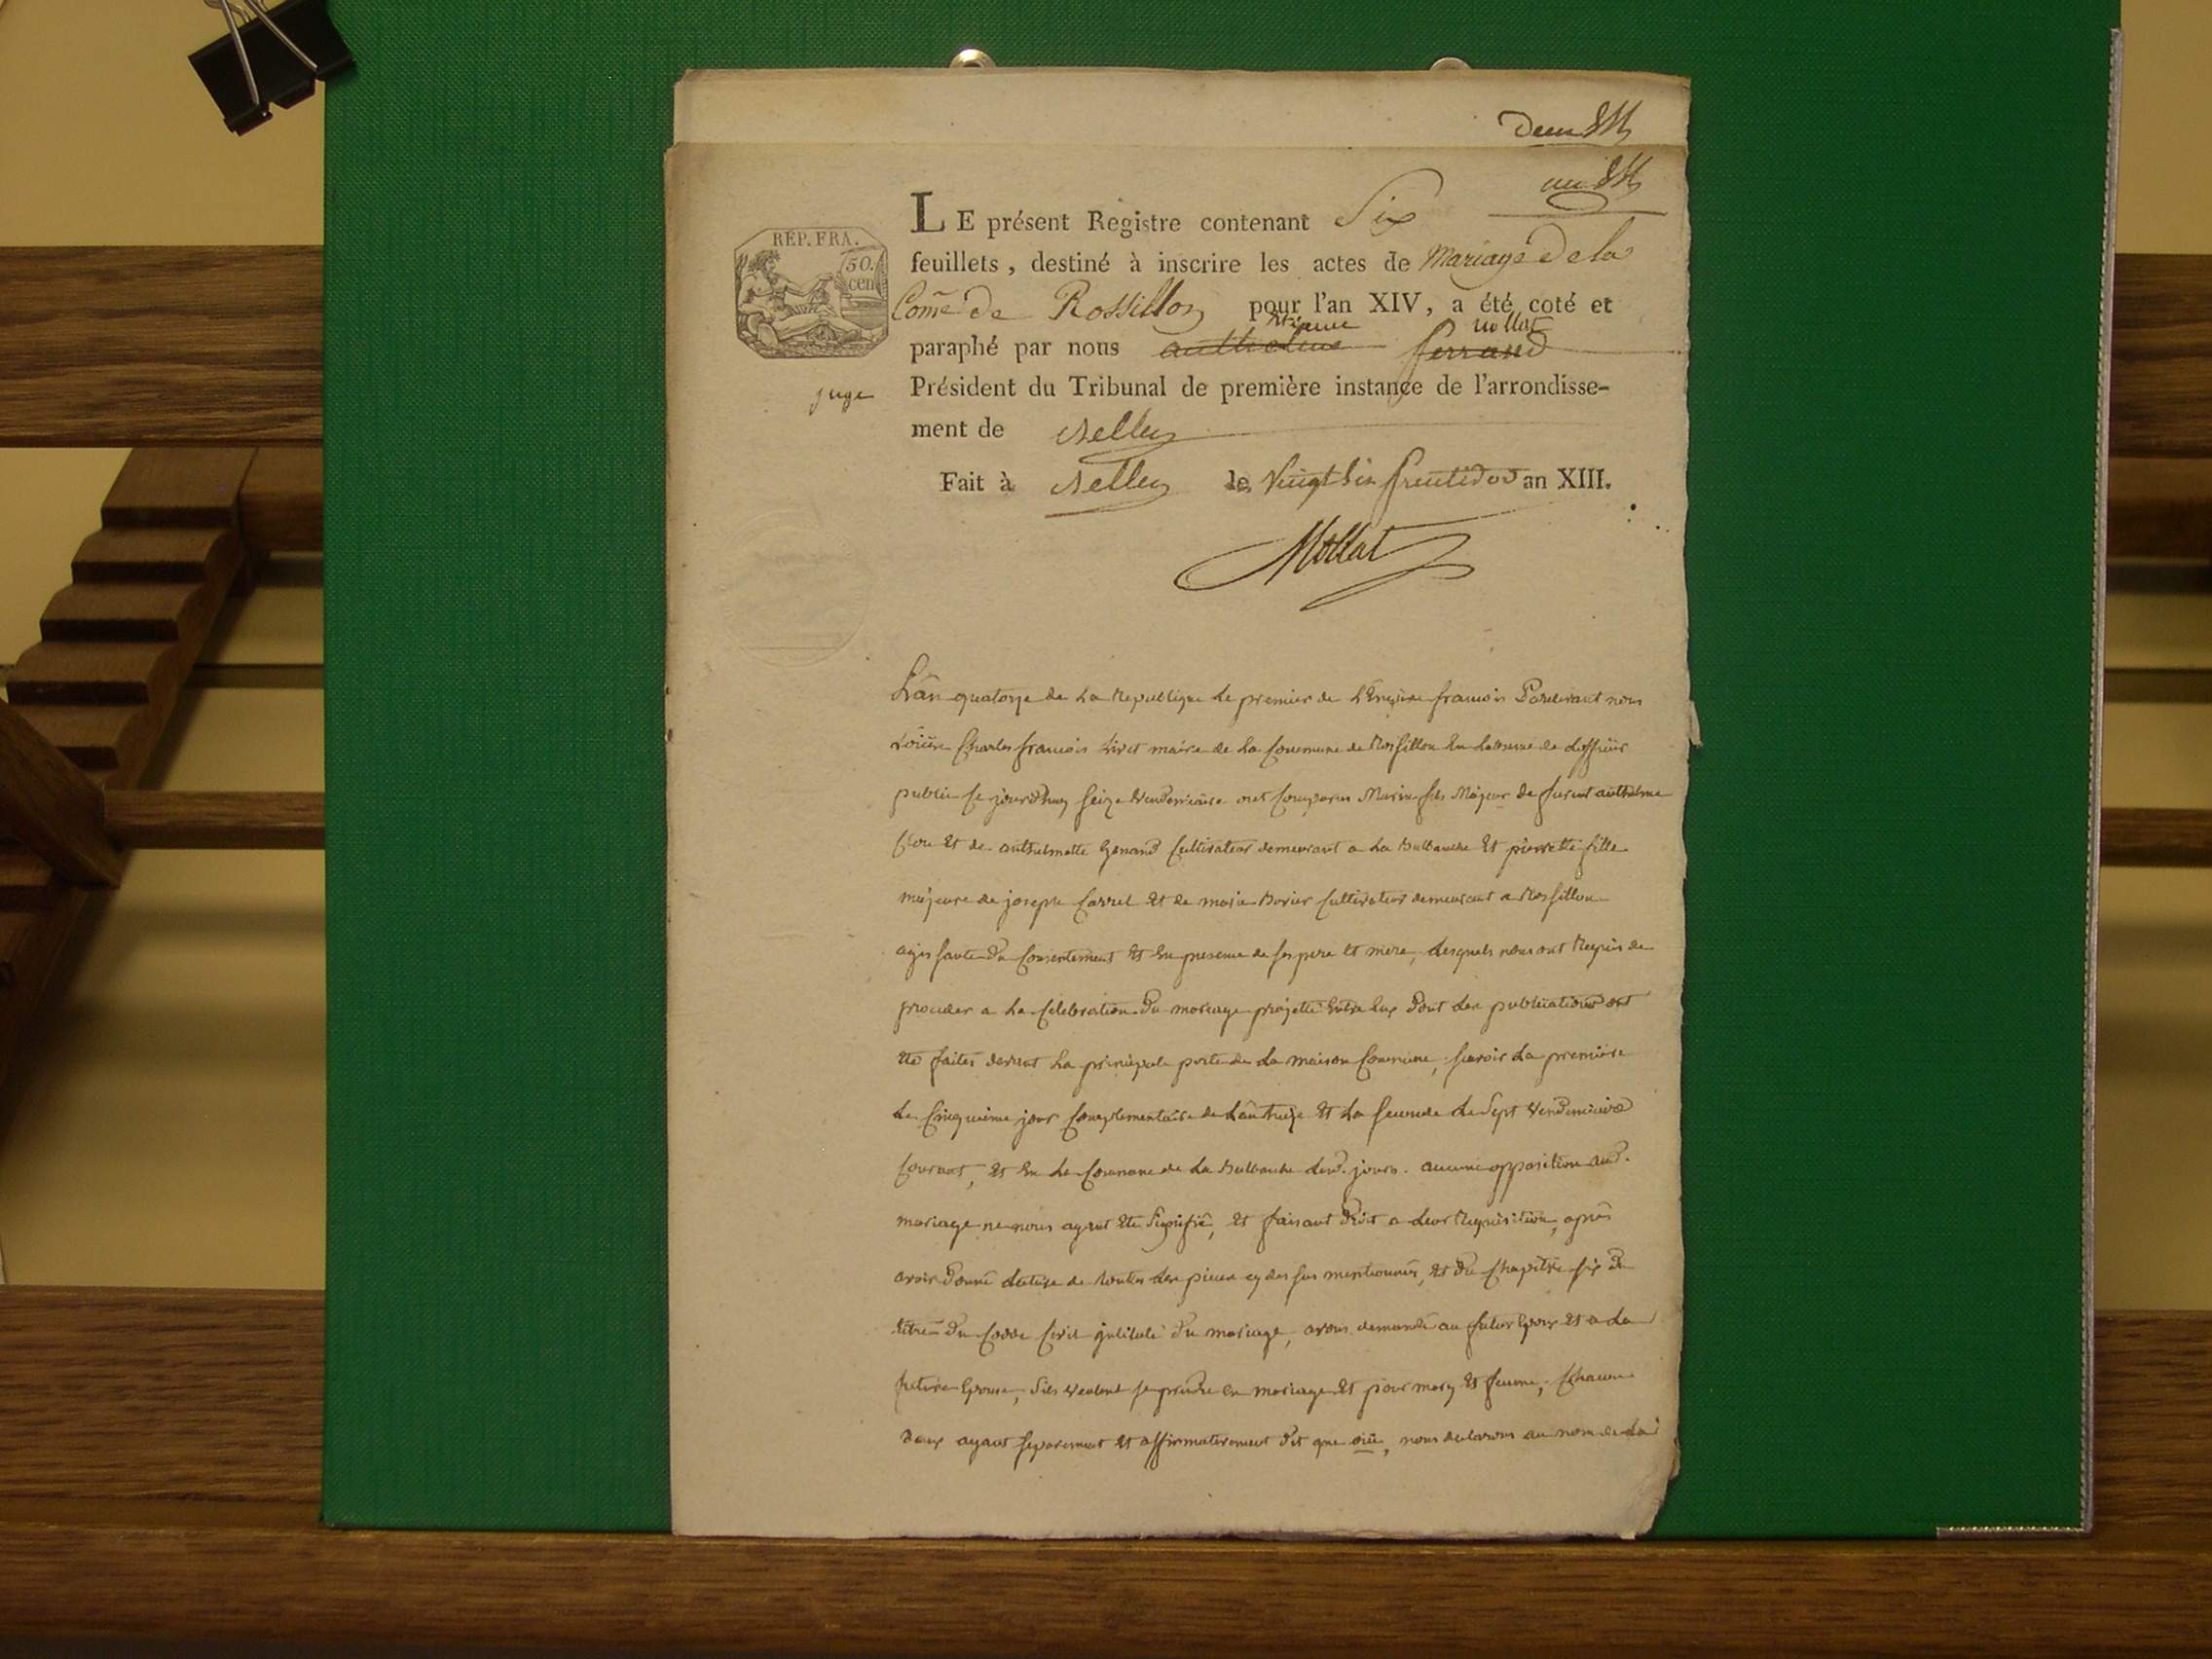 deux
un
REP. FRA.
50.
cen
LE présent Registre contenant Six
feuillets, destiné à inscrire les actes de Mariage de la
Com̃e de Rossillon pour l'an XIV, a été coté et
Mollat
paraphé par nous anthelme ferrand
juge Président du Tribunal de première instance de l'arrondisse-
ment de Belley
Fait à Belley le Vingt Six fructidor an XIII.
Mollat
L'an quatorze de La Republique Le premier de L'Empire francois Pardevant nous
Charles francois Livet maire de La Commune de Rossillon
public Ce jourdhuy Seize Vendemiaire ont Comparus Marin fils Majeur de furent anthelme
et de anthelmette Genand Cultivateur demeurant a La Balbanche Et pierrette fille
majeure de joseph Carrel Et de marie Borier Cultivateur demeurant a Rossillon
agissante du Consentement Et En presence de ses pere Et mere, Lesquels nous ont Requis de
proceder a La Celebration du mariage projetté Entre Eux dont Les publications ont
Eté faites devant La principale porte de La maison Commune, scavoir La premiere
Le Cinquieme jour Complementaire de L'an treize Et La Seconde Le Sept Vendemiaire
Courant, Et En La Commune de La Balbanche Lesd. jours. aucune opposition aud.
mariage ne nous ayant Eté Signifié, Et faisant droit a Leur Requisition, après
avoir donné Lecture de toutes Les pieces cy dessus mentionnés, Et du Chapitre six du
titre du Codde Civil jntitulé du mariage, avons demandé au futur Epoux Et a La
future Epouse, S'ils Veulent se prendre En mariage Et pour mary Et femme, Chacun
deux ayant separement Et affirmativement dit que oüi, nous declarons au nom de La